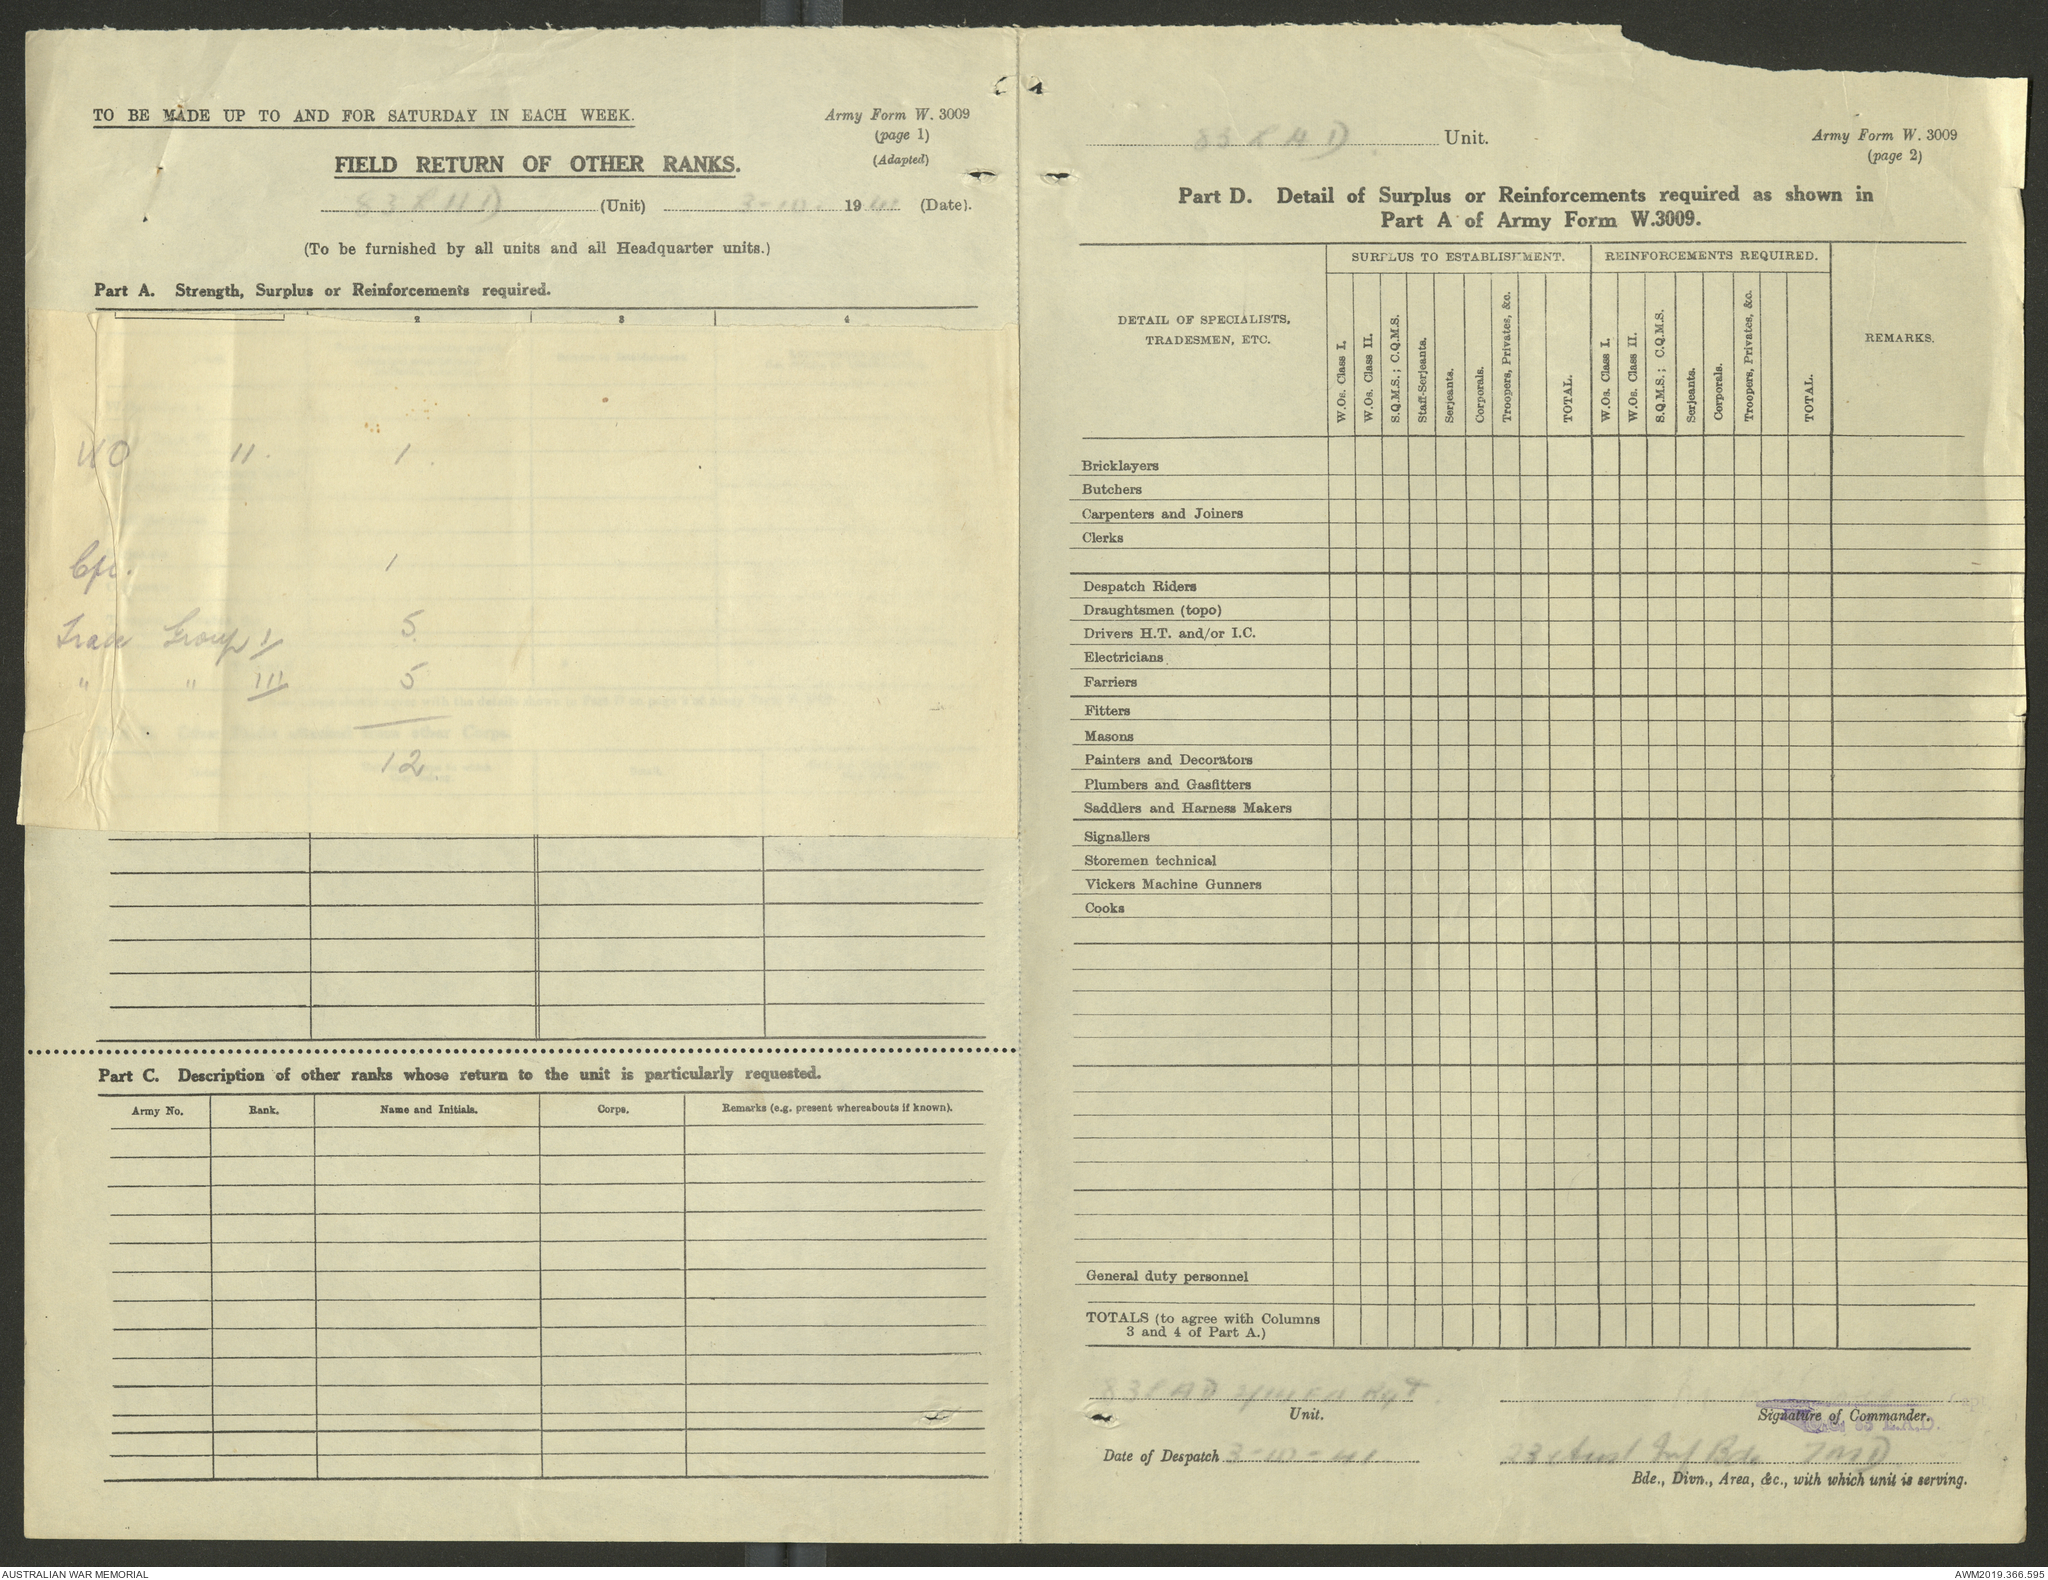 TO BE MADE UP TO AND FOR SATURDAY IN EACH WEEK.
Army Form W. 3009
(page 1)
(Adapted)
FIELD RETURN OF OTHER RANKS.
(Unit) 1941 (Date).
(To be furnished by all units and all Headquarter units.)
Part A. Strength, Surplus or Reinforcements required.
2 3 4
WO II. 1
Cpl. 1
Trade Group I 5
" " III 5
12
Part C. Description of other ranks whose return to the unit is particularly requested.
Army No. Rank. Name and Initials. Corps. Remarks (e.g. present whereabouts if known).
Unit.
Army Form W. 3009
(page 2)
Part D. Detail of Surplus or Reinforcements required as shown in
Part A of Army Form W.3009.
DETAIL OF SPECIALISTS,
TRADESMEN, ETC.
SURPLUS TO ESTABLISHMENT.
REINFORCEMENTS REQUIRED.
REMARKS.
W.Os. Class I.
W.Os. Class II.
S.Q.M.S.; C.Q.M.S.
Staff-Serjeants.
Serjeants.
Corporals.
Troopers, Privates, &c.
TOTAL.
W.Os. Class I.
W.Os. Class II.
S.Q.M.S.; C.Q.M.S.
Serjeants.
Corporals.
Troopers, Privates, &c.
TOTAL.
Bricklayers
Butchers
Carpenters and Joiners
Clerks
Despatch Riders
Draughtsmen (topo)
Drivers H.T. and/or I.C.
Electricians
Farriers
Fitters
Masons
Painters and Decorators
Plumbers and Gasfitters
Saddlers and Harness Makers
Signallers
Storemen technical
Vickers Machine Gunners
Cooks
General duty personnel
TOTALS (to agree with Columns
3 and 4 of Part A.)
Unit.
Signature of Commander.
Date of Despatch
23 Aust Inf Bde 7MD
Bde., Divn., Area, &c., with which unit is serving.
AUSTRALIAN WAR MEMORIAL
AWM2019.366.595